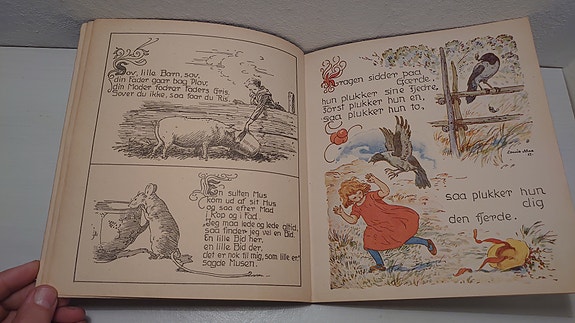 Sov, lille Barn, sov,
din Fader gaar bag Plov,
din Moder fodrer Faders Gris,
Sover du ikke, saa faar du Ris.
En sulten Mus
kom ud af sit Hus
og saa efter Mad
i Kop og i Fad.
Jeg maa lede og lede altid,
saa finder jeg vel en Bid.
En lille Bid her,
en lille Bid der,
det er nok til mig, som lille er,
sagde Musen.
Kragen sidder paa
Gærde.
hun plukker sine Fjedre,
först plukker hun en,
saa plukker hun to,
saa plukker hun
dig
den fjerde.